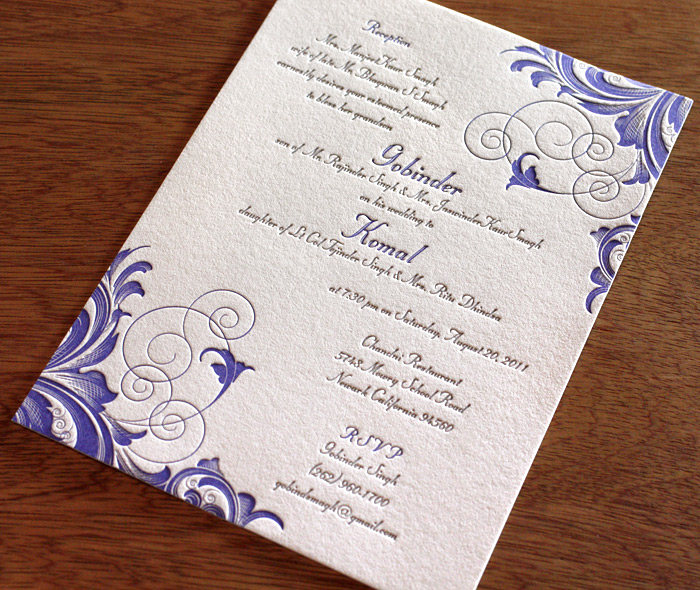 Reception
Mrs. Manjeet Kaur Snagh
wife of late Mr. Bhagwan S Snagh
earnestly desires your esteemed presence
to bless her grandson
Gobinder
son of Mr. Rajinder Singh & Mrs. Jaswinder Kaur Snagh
on his wedding to
Komal
daughter of Lt Col Tejinder Singh & Mrs. Rita Dhindsa
at 7:30 pm on Saturday, August 20, 2011
Chandni Restaurant
5748 Mowry School Road
Newark California 94560
RSVP
Gobinder Singh
(262) 960.1700
gobindersnagh@gmail.com